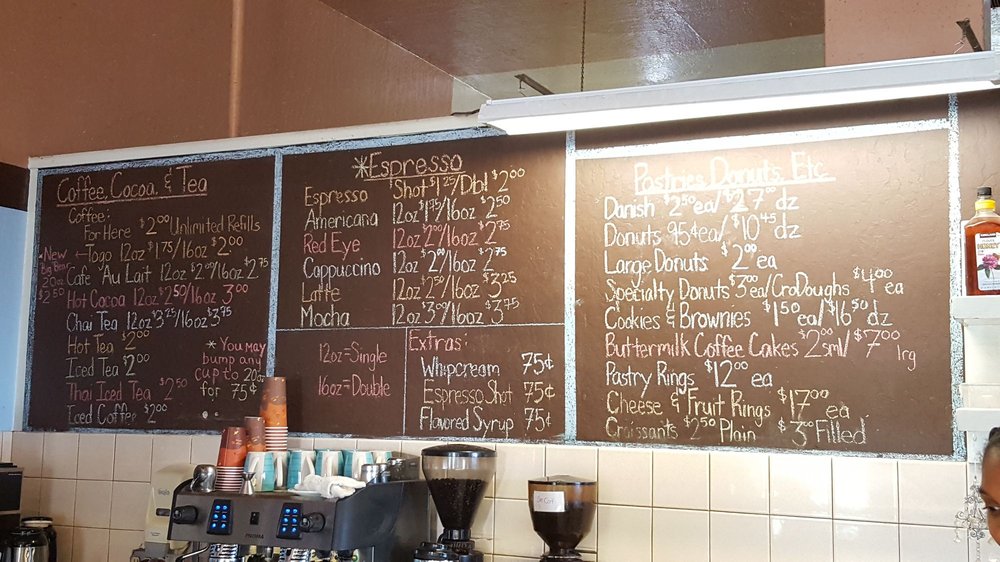 Coffee, Cocoa, & Tea
Coffee:
For Here $2.00 Unlimited Refills
←Togo 12oz $1.75/16oz $2.00
*New
20oz
$2.50
Cafe 'Au Lait 12oz $2.00/16oz $2.75
Hot Cocoa 12oz $2.50/16oz $3.00
Chai Tea 12oz $3.25/16oz $3.75
Hot Tea $2.00
Iced Tea $2.00
Thai Iced Tea $2.50
Iced Coffee $2.00
* You may
bump any
cup to 20oz
for 75¢
*Espresso
Espresso Shot $1.25/Dbl $2.00
Americana 12oz $1.75/16oz $2.50
Red Eye 12oz $2.00/16oz $2.75
Cappuccino 12oz $2.00/16oz $2.75
Latte 12oz $2.50/16oz $3.25
Mocha 12oz $3.00/16oz $3.75
12oz=Single
16oz=Double
Extras:
Whipcream 75¢
Espresso Shot 75¢
Flavored Syrup 75¢
Pastries, Donuts, Etc
Danish $2.50 ea/$27.00 dz
Donuts 95¢ ea/$10.45 dz
Large Donuts $2.00 ea
Specialty Donuts $3 ea/CroDoughs $4.00 ea
Cookies & Brownies $1.50 ea/$16.50 dz
Buttermilk Coffee Cakes $2.00 sml/$7.00 lrg
Pastry Rings $12.00 ea
Cheese & Fruit Rings $17.00 ea
Croissants $2.50 Plain $3.00 Filled
HONEY
Decaf